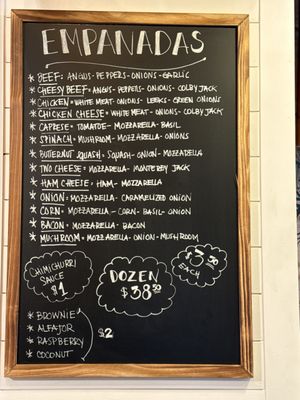 EMPANADAS
* BEEF: ANGUS-PEPPERS-ONIONS-GARLIC
* CHEESY BEEF: ANGUS-PEPPERS-ONIONS-COLBY JACK
* CHICKEN: WHITE MEAT-ONIONS-LEEKS-GREEN ONIONS
* CHICKEN CHEESE: WHITE MEAT-ONIONS-COLBY JACK
* CAPRESE: TOMATOE-MOZZARELLA-BASIL
* SPINACH: MUSHROOM-MOZZARELLA-ONIONS
* BUTTERNUT SQUASH: SQUASH-ONION-MOZZARELLA
* TWO CHEESE: MOZZARELLA-MONTEREY JACK
* HAM CHEESE: HAM-MOZZARELLA
* ONION: MOZZARELLA-CARAMELIZED ONION
* CORN: MOZZARELLA-CORN-BASIL-ONION
* BACON: MOZZARELLA-BACON
* MUSHROOM: MOZZARELLA-ONION-MUSHROOM
CHIMICHURRI
SAUCE
$1
DOZEN
$38.50
$3.50
EACH
* BROWNIE
* ALFAJOR
* RASPBERRY
* COCONUT
$2